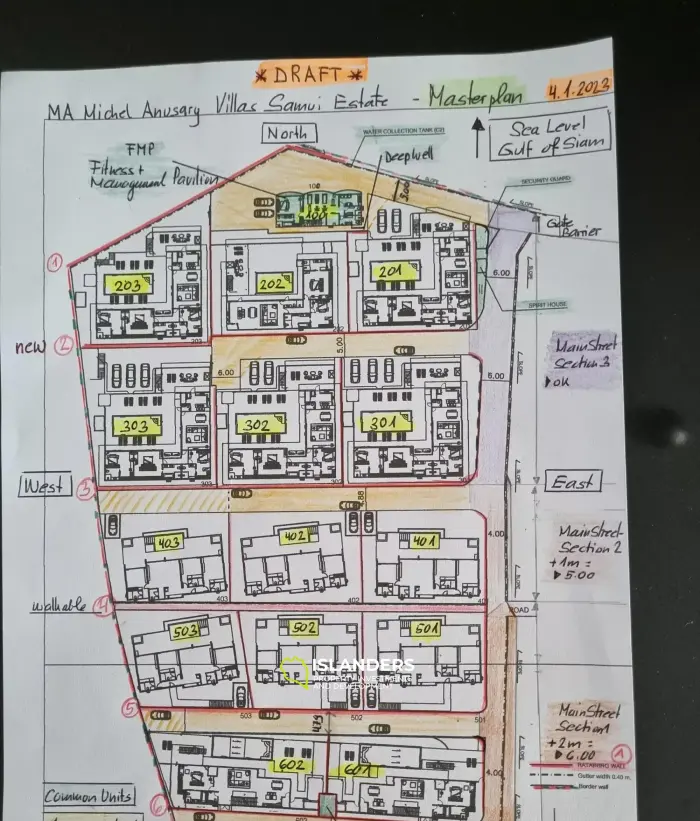 * DRAFT *
MA Michel Anusary Villas Samui Estate - Masterplan
4.1.2023
North
Sea Level
Gulf of Siam
WATER COLLECTION TANK
FMP
Fitness +
Management Pavilion
Deepwell
SECURITY GUARD
SLOPE
100
100
5.00
Gate
Barrier
1
203
202
201
6.00
SPIRIT HOUSE
new 2
5.00
6.00
6.00
MainStreet
Section 3
▸ OK
303
302
301
West
3
East
403
402
401
4.00
MainStreet
Section 2
+1m =
▸ 5.00
walkable 4
402
ROAD
503
502
501
ISLANDERS
PROPERTY INVESTMENT
AND DEVELOPMENT
5
503
502
501
479
MainStreet
Section 1
+2m =
▸ 6.00
1
602
601
4.00
RETAINING WALL
Gutter width 0.40 m.
Border wall
Common Units
6